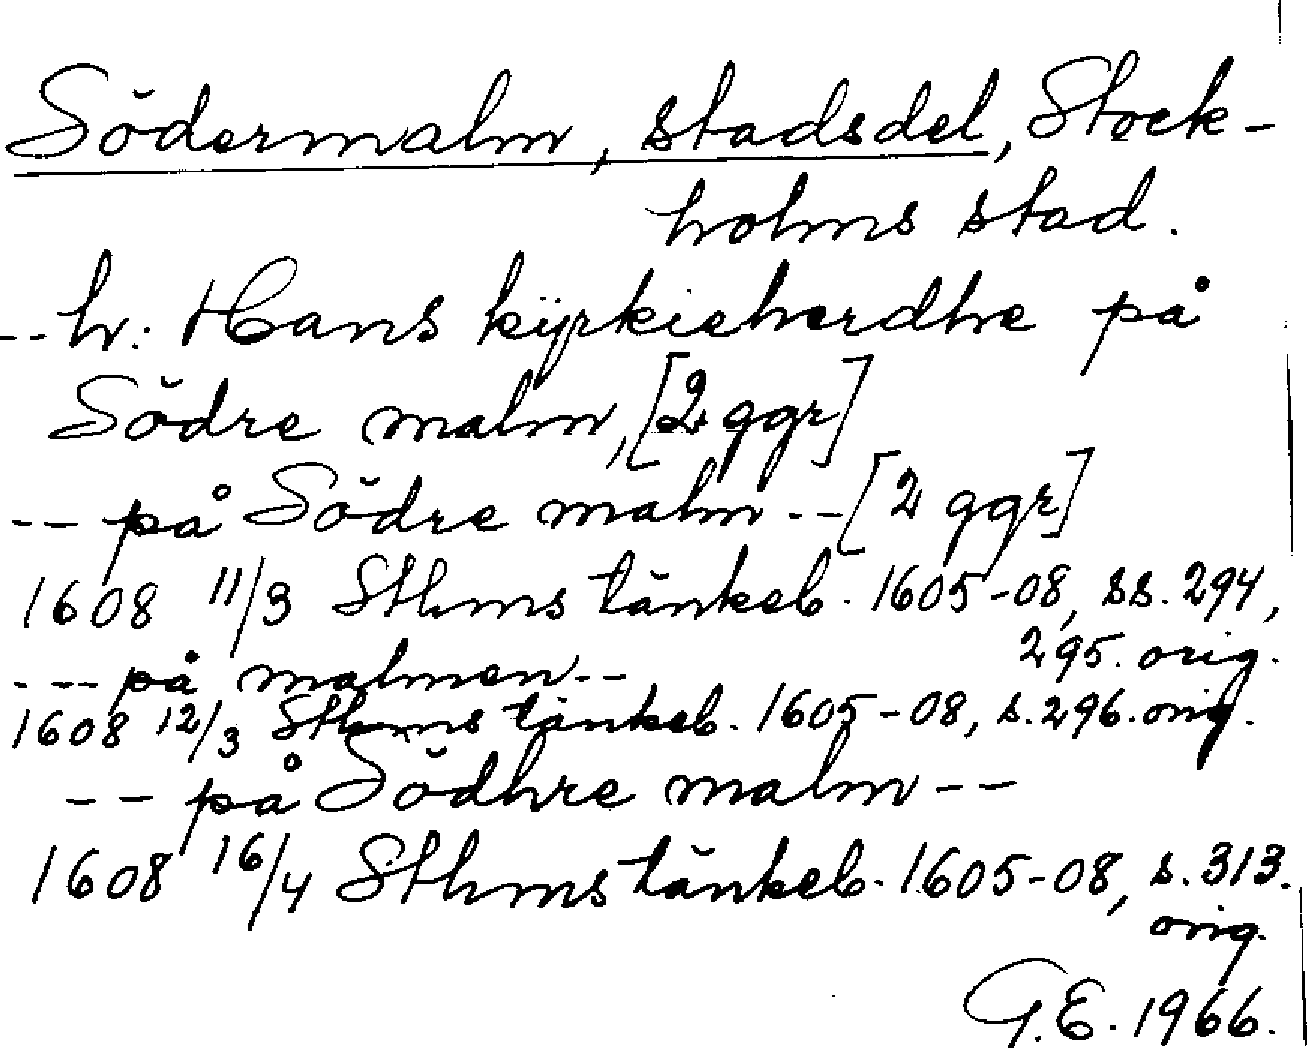 Södermalm, stadsdel, Stock-
holms stad.
-- hr. Hans kÿrkieherdhe på
Södre malm, [2 ggr]
-- på Södre malm -- [2 ggr]
1608 11/3 Sthms tänkeb. 1605-08, ss. 294,
295. orig.
--- på malmen --
1608 12/3 Sthms tänkeb. 1605-08, s. 296. orig.
-- på Södhre malm --
1608 16/4 Sthms tänkeb. 1605-08, s. 313.
orig.
G.E. 1966.